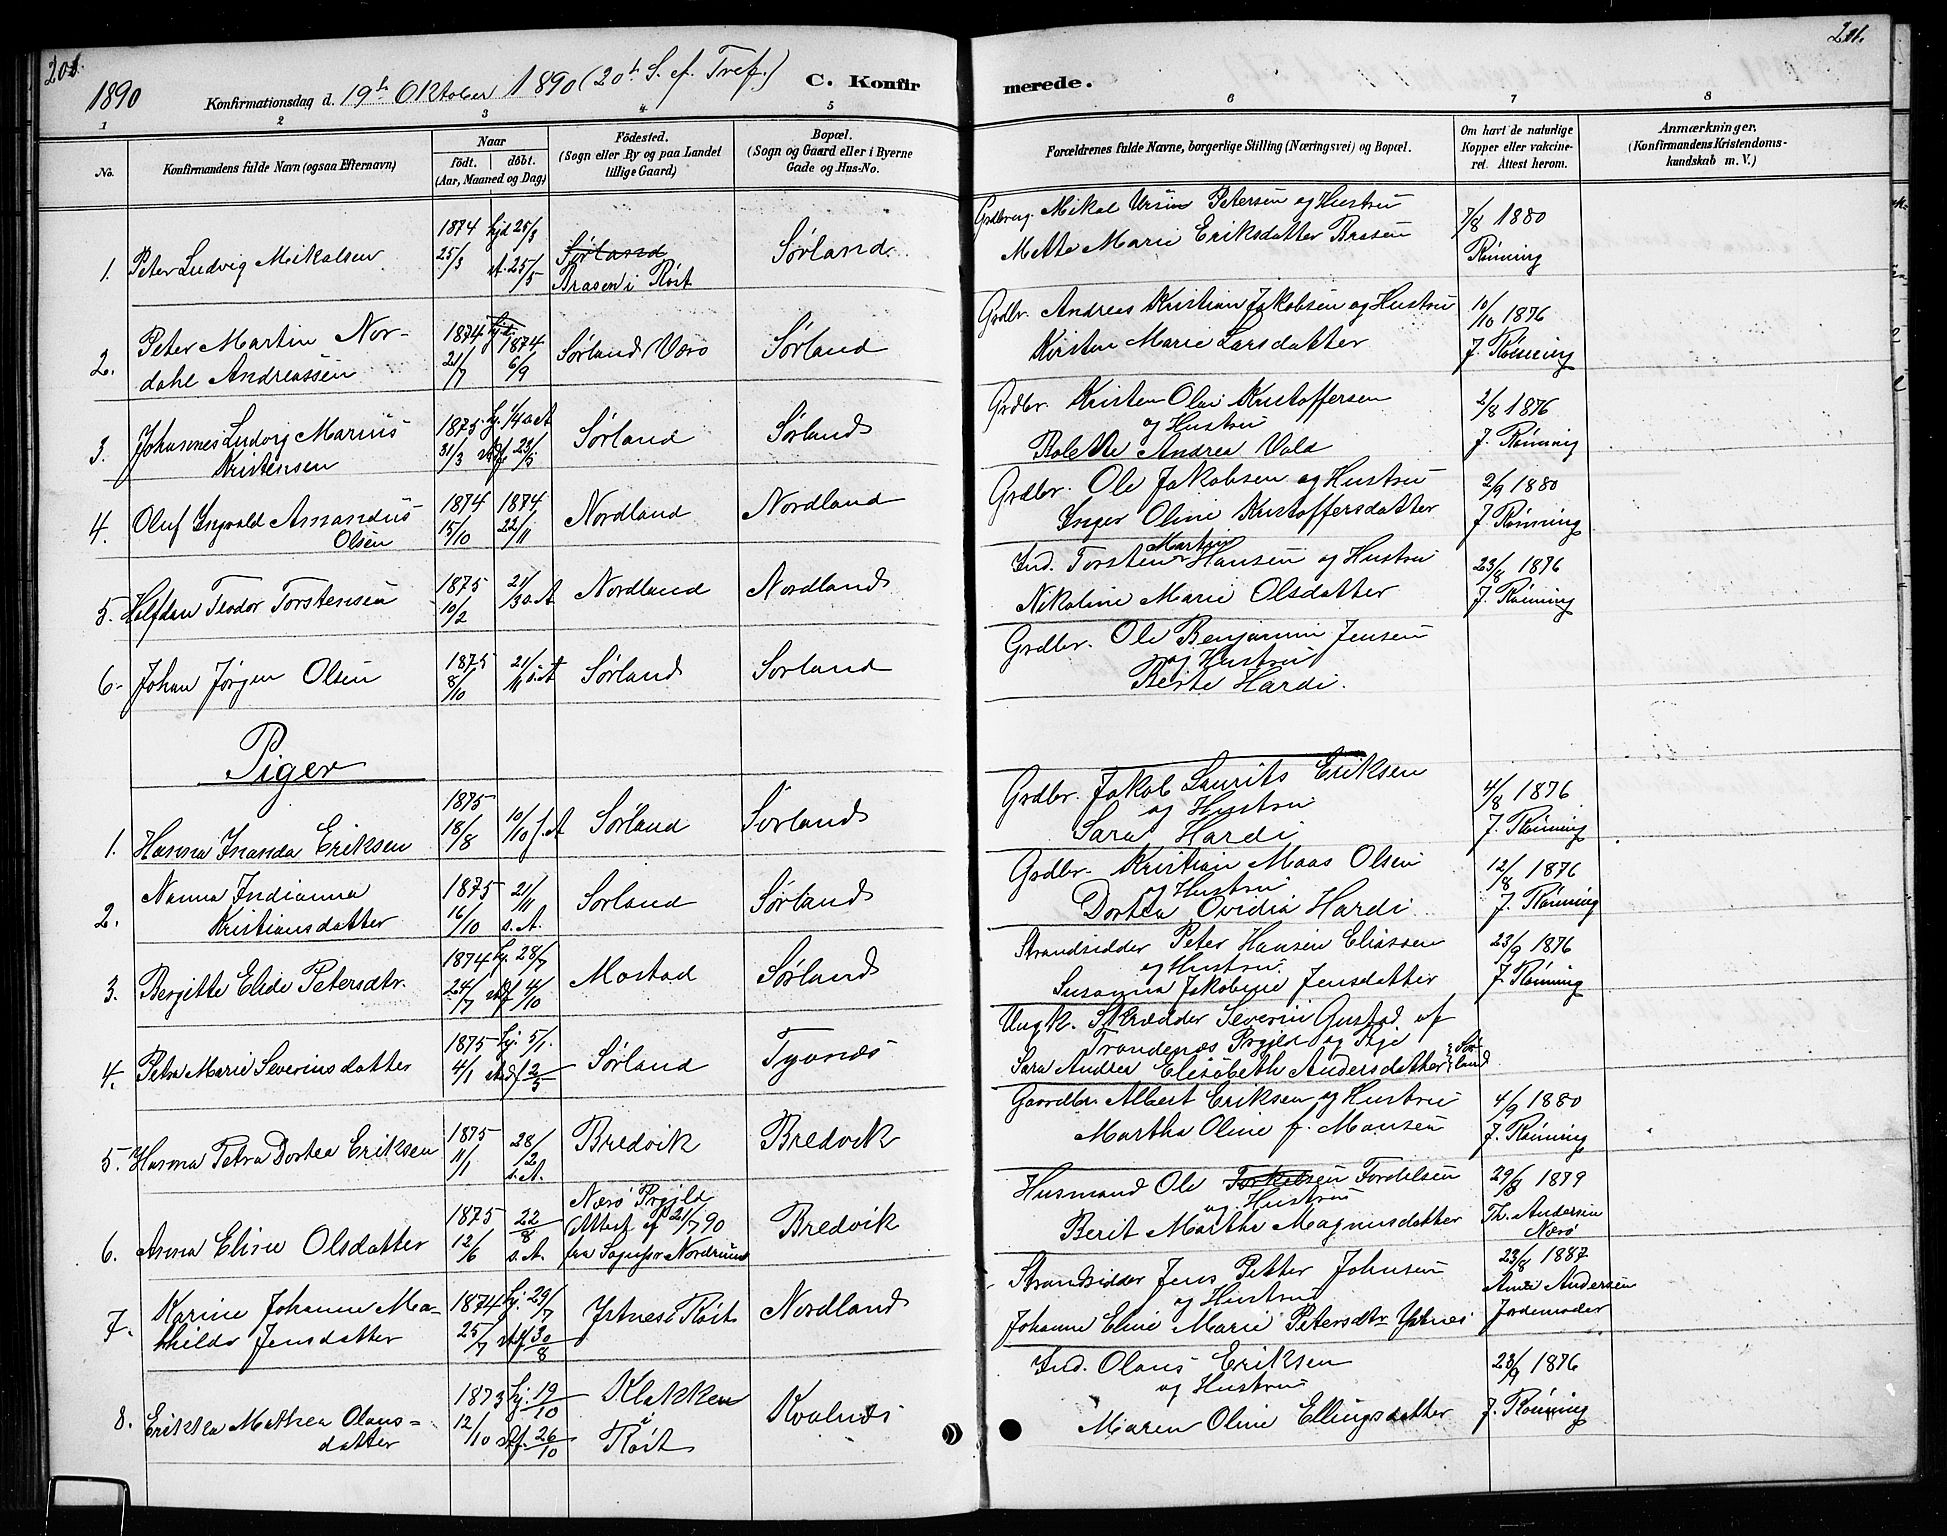 201.
201.
1890
Konfirmationsdag d. 19de Oktober 1890 (20de S. ef. Tref.)
C. Konfirmerede.
1 2 3 4 5 6 7 8
No.
Konfirmandens fulde Navn (ogsaa Efternavn)
Naar
født. døbt.
(Aar, Maaned og Dag)
Fødested.
(Sogn eller By og paa Landet
tillige Gaard)
Bopæl.
(Sogn og Gaard eller i Byerne
Gade og Hus-No.
Forældrenes fulde Navne, borgerlige Stilling (Næringsvei) og Bopæl.
Om havt de naturlige
Kopper eller vakcine-
ret. Attest herom.
Anmærkninger.
(Konfirmandens Kristendoms-
kundskab m. V.)
1. Peter Ludvig Mikalsen
1874 25/3
hjd 25/3 st. 25/5
Sørland
Brasen i Røst
Sørland
Grdbrug. Mikal Ursin Petersen og Hustru
Mette Marie Eriksdatter Brasen
7/8 1880
Rønning
2. Peter Martin Nor-
dahl Andreassen
1874 21/7
1874 6/9
Sørland Værø
Sørland
Grdbr. Andreas Kristian Jakobsen og Hustru
Kirsten Marie Larsdatter
10/10 1876
J. Rønning
3. Johannes Ludvig Marius
Kristensen
1875 31/3
23/5
Sørland
Sørland
Grdbr. Kristen Olai Kristoffersen
og Hustru
Andrea Vold
2/8 1876
J. Rønning
4. Oluf Ingvald Amandus
Olsen
1874 15/10
1874 22/11
Nordland
Nordland
Grdbr. Ole Jakobsen og Hustru
Inger Oline Kristoffersdatter
2/9 1880
J. Rønning
5. Halfdan Teodor Torstensen
1875 10/2
21/3 s. A
Nordland
Nordland
Ind. Torsten Martin Hansen og Hustru
Nikoline Marie Olsdatter
23/8 1876
J. Rønning
6. Johan Jørgen Olsen
1875 8/10
21/11 s. A
Sørland
Sørland
Grdbr. Ole Benjamin Jensen
og Hustru
Berte Hardi.
Piger
1. Hanna Inanda Eriksen
1875 18/8
10/10 s. A
Sørland
Sørland
Grdbr. Jakob Laurits Eriksen
og Hustru
Sara Hardi
4/8 1876
J. Rønning
2. Nanna Indianna
Kristiansdatter
1875 16/10
21/11 s. A.
Sørland
Sørland
Grdbr. Kristian Maas Olsen
og Hustru
Dortea Ovidia Hardi
12/8 1876
J. Rønning
3. Bergitte Elide Petersdtr.
1874 24/7
hj. 28/7 stdf 4/10
Mostad
Sørland
Strandsidder Peter Hansen Eliassen
og Hustru
Susanna Jakobine Jensdatter
23/9 1876
J. Rønning
4. Petra Marie Severinsdatter
1875 4/1
hj. 5/1. stadf 2/5
Sørland
Tyvnæs
Ungk. Skrædder Severin Gustad af
Trondenæs Prgjld og Pige
Sara Andrea Elisabeth Andersdatter Sør-
land
5. Hanna Petra Dortea Eriksen
1875 11/1
28/2 s. A.
Bredvik
Bredvik
Gaardbr. Albert Eriksen og Hustru
Martha Oline f. Monsen
4/9 1880
J. Rønning
6. Anna Eline Olsdatter
1875 12/6
22/8 s. A.
Nærø Prgjld
Attest af 21/7 90
fra Sognepr Nordrum
Bredvik
Husmand Ole Torkelsen Tordelsen
og Hustru
Berit Martha Magnusdatter
29/8 1879
Th. Andersen
Nærø
7. Karine Johanne Ma-
thilde Jensdatter
1874 25/7
hj. 29/7 stdf 30/8
Ystnes i Røst
Nordland
Strandsidder Jens Petter Johnsen
og Hustru
Johanne Eline Marie Petersdtr Ystnes
23/8 1887
Andersen
Jordemoder
8. Erikka Mathea Olaus-
datter
1873 12/10
hj. 19/10 stf. 26/10
Klakken
i
Røst
Kvalnes
Ind. Olaus Eriksen
og Hustru
Maren Oline Ellingsdatter
23/9 1876
J. Rønning